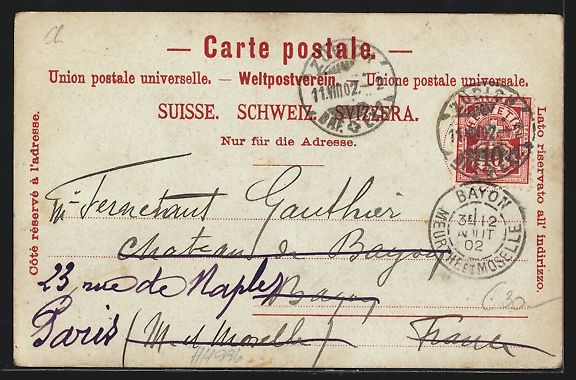 — Carte postale. —
Union postale universelle. — Weltpostverein. — Unione postale universale.
SUISSE. SCHWEIZ. SVIZZERA.
Nur für die Adresse.
Côté réservé à l'adresse.
Lato riservato all' indirizzo.
11.VIII.02.-2
BRF.
HELVETIA
10
BAYON
12
AOUT
02
MEURTHE ET MOSELLE
Gauthier
Chateau de Bayon
23 rue de Naples
Bayon
Paris
(M et Moselle)
France